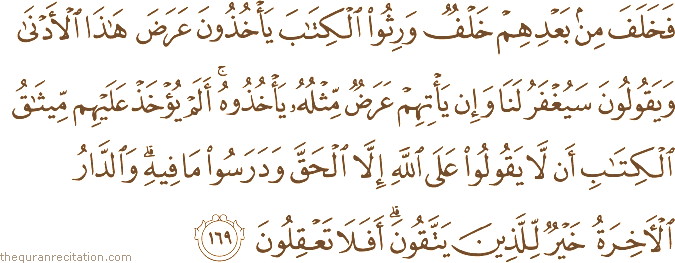 فَخَلَفَ مِنۢ بَعۡدِهِمۡ خَلۡفٞ وَرِثُواْ ٱلۡكِتَٰبَ يَأۡخُذُونَ عَرَضَ هَٰذَا ٱلۡأَدۡنَىٰ
وَيَقُولُونَ سَيُغۡفَرُ لَنَا وَإِن يَأۡتِهِمۡ عَرَضٞ مِّثۡلُهُۥ يَأۡخُذُوهُۚ أَلَمۡ يُؤۡخَذۡ عَلَيۡهِم مِّيثَٰقُ
ٱلۡكِتَٰبِ أَن لَّا يَقُولُواْ عَلَى ٱللَّهِ إِلَّا ٱلۡحَقَّ وَدَرَسُواْ مَا فِيهِۗ وَٱلدَّارُ
ٱلۡأٓخِرَةُ خَيۡرٞ لِّلَّذِينَ يَتَّقُونَۗ أَفَلَا تَعۡقِلُونَ ١٦٩
thequranrecitation.com